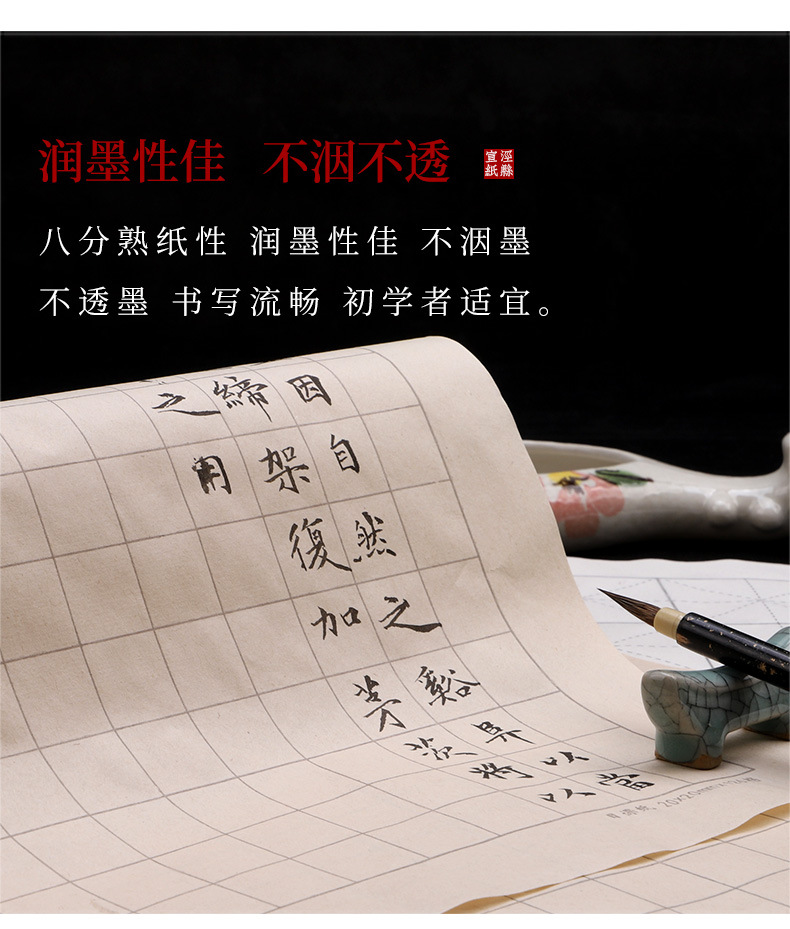 润墨性佳 不洇不透
涇縣
宣紙
八分熟纸性 润墨性佳 不洇墨
不透墨 书写流畅 初学者适宜。
因自然之谿阜以當
締架復加茅茨將以
之用